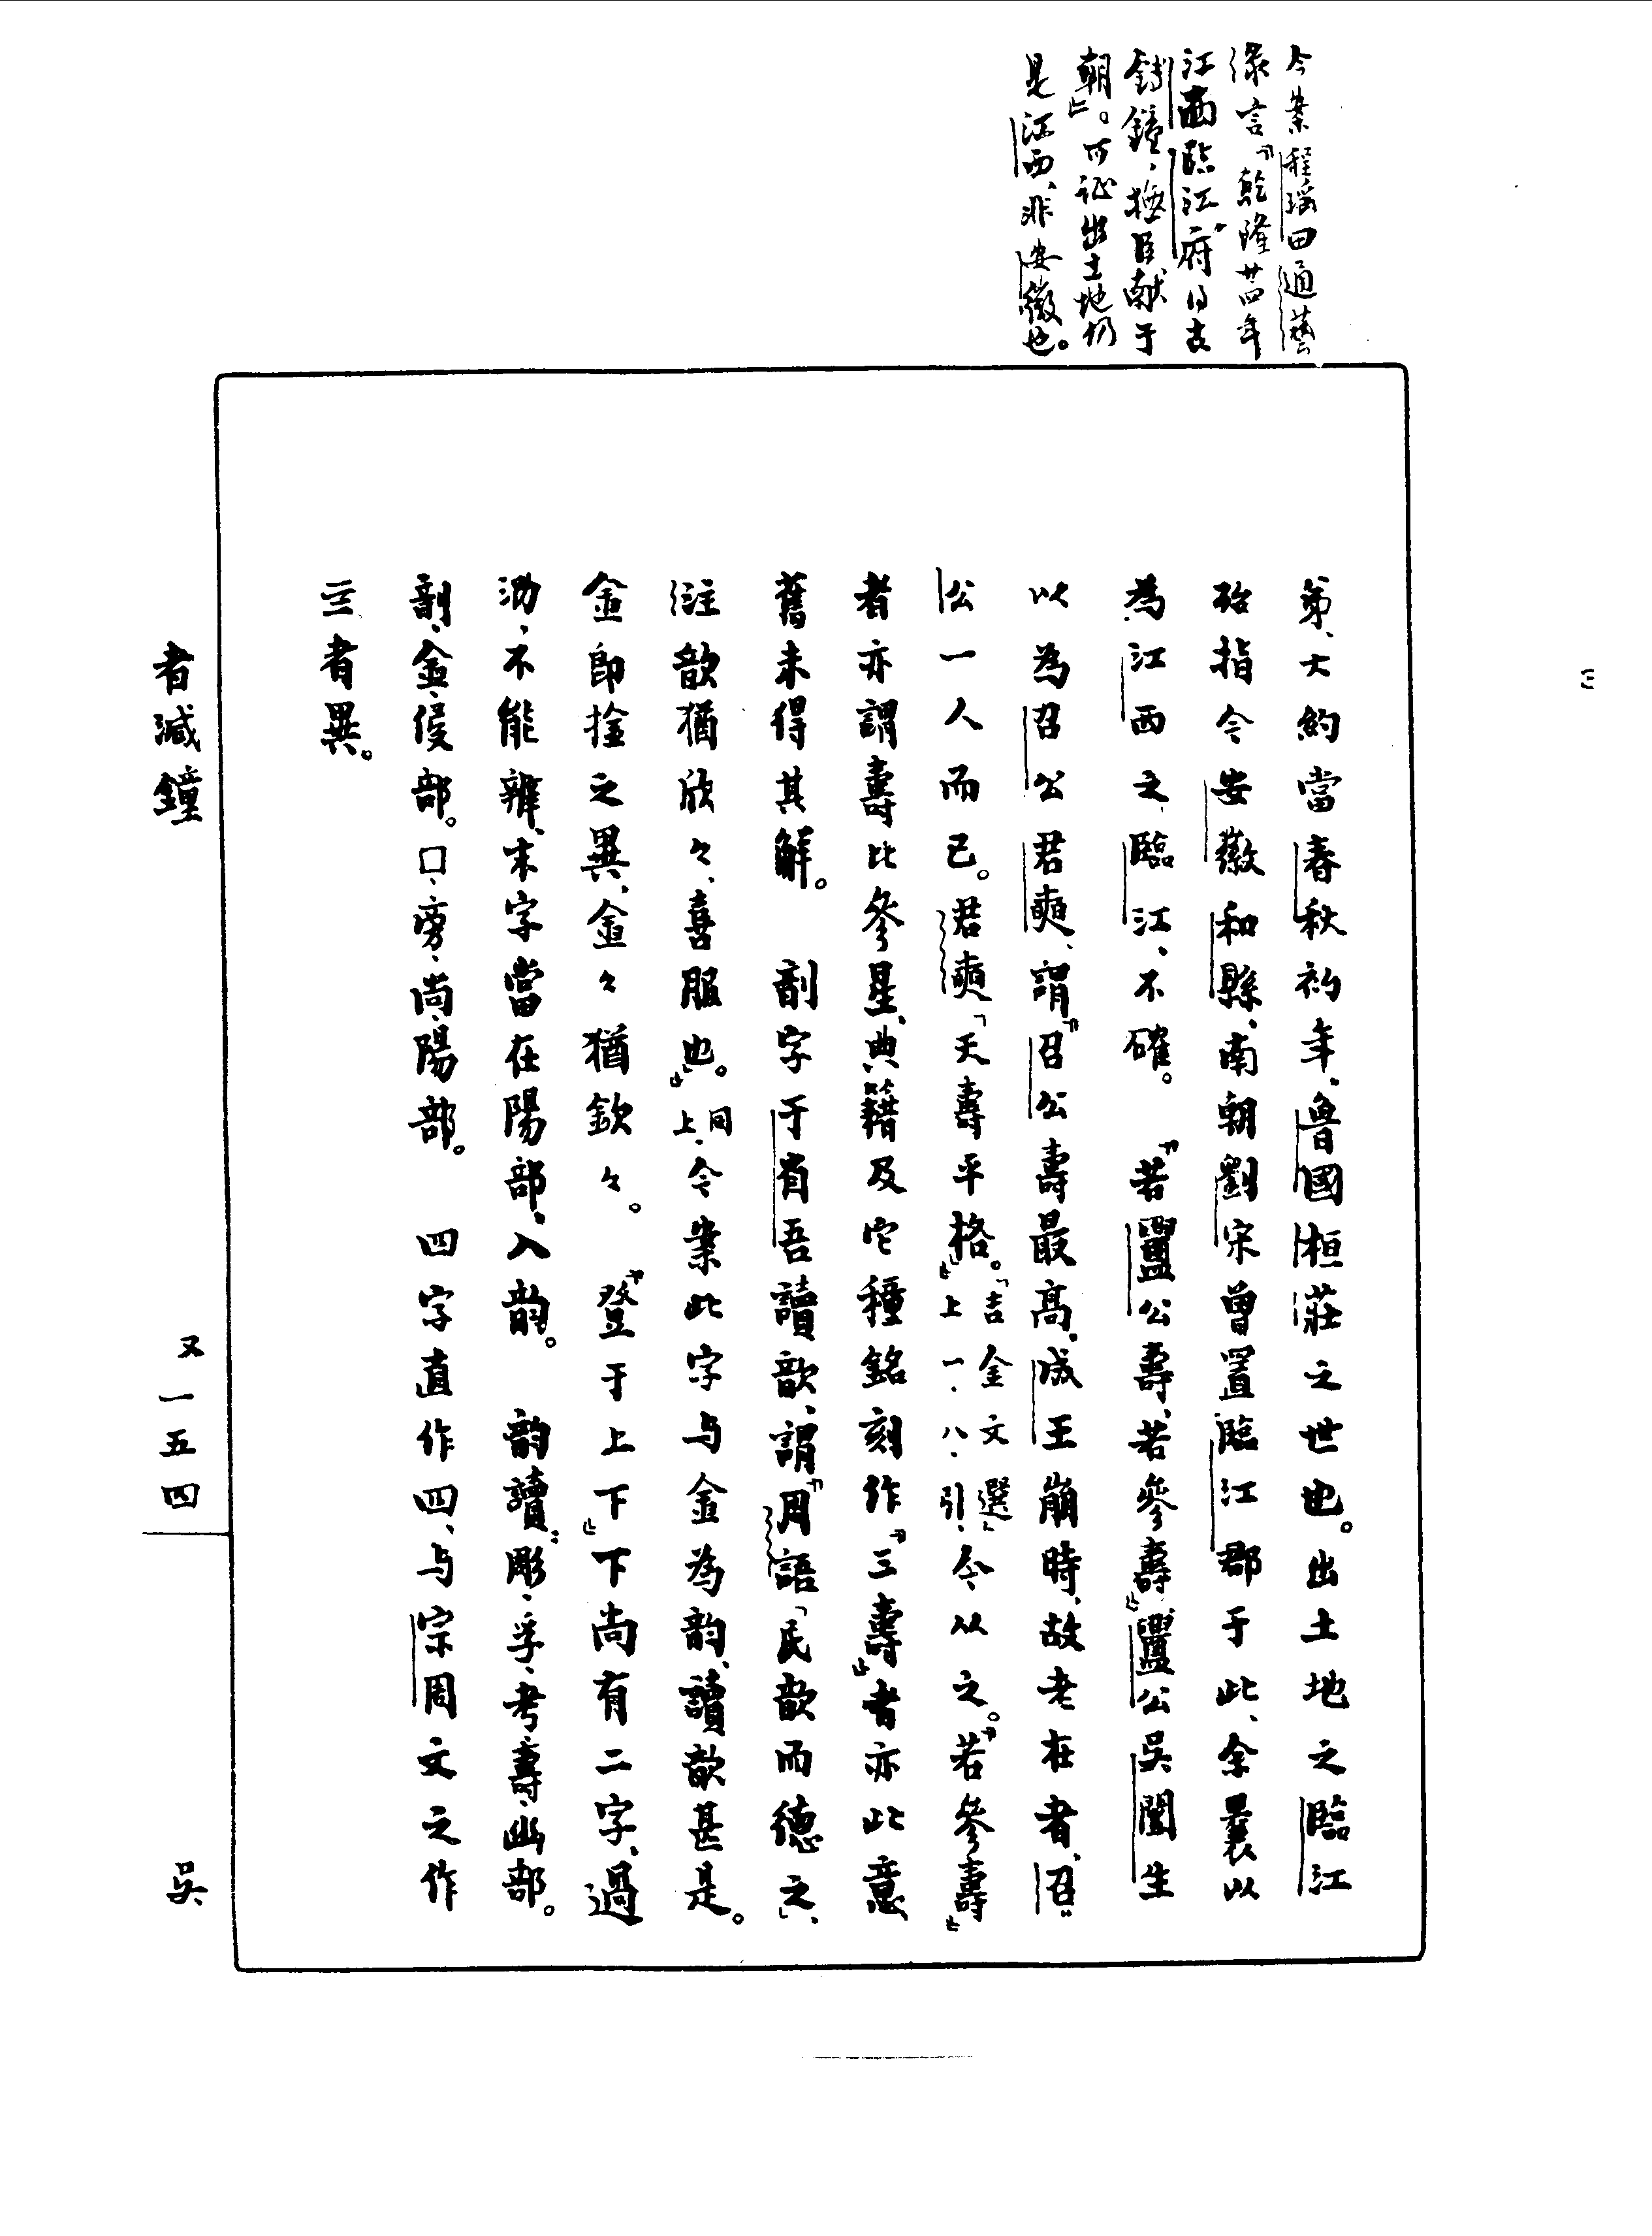 今案程瑤田通藝
录言「乾隆廿四年
江西臨江府得古
鎛鐘，撫臣献于
朝」。可証出土地仍
是江西、非安徽也。
弟、大約當春秋初年、魯國桓莊之世也。出土地之臨江
殆指今安徽和縣、南朝劉宋曾置臨江郡于此、余曩以
為江西之臨江、不確。 「若𥂴公壽、若參壽」、𥂴公吳闓生
以為召公君奭、謂「召公壽最高、成王崩時、故老在者、召
公一人而已。君奭「天壽平格」。「吉金文選」上一．八．引．今从之。「若參壽」
者亦謂壽比參星、典籍及它種銘刻作「三壽」者亦此意
舊未得其解。 剖字于省吾讀歆、謂「周語「民歆而德之」、
注歆猶欣々、喜服也。」同上．今案此字与金為韵、讀歆甚是。
金即捦之異、金々猶欽々。 「登于上下」下尚有二字、過
泐、不能辨、末字當在陽部、入韵。 韵讀：彫、孚、考壽、幽部。
剖、金、侵部。口、旁、尚、陽部。 四字直作四、与宗周文之作
亖者異。
者減鐘
又一五四
吳